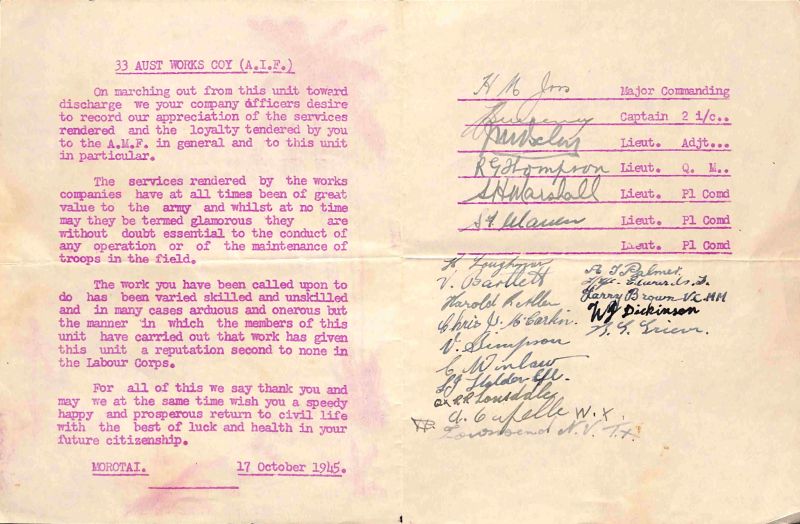 33 AUST WORKS COY (A.I.F.)
On marching out from this unit toward
discharge we your company officers desire
to record our appreciation of the services
rendered and the loyalty tendered by you
to the A.M.F. in general and to this unit
in particular.
The services rendered by the works
companies have at all times been of great
value to the army and whilst at no time
may they be termed glamorous they are
without doubt essential to the conduct of
any operation or of the maintenance of
troops in the field.
The work you have been called upon to
do has been varied skilled and unskilled
and in many cases arduous and onerous but
the manner in which the members of this
unit have carried out that work has given
this unit a reputation second to none in
the Labour Corps.
For all of this we say thank you and
may we at the same time wish you a speedy
happy and prosperous return to civil life
with the best of luck and health in your
future citizenship.
MOROTAI. 17 October 1945.
H M Major Commanding
Captain 2 i/c..
Lieut. Adjt...
R G Thompson Lieut. Q. M..
S H Marshall Lieut. Pl Comd
Lieut. Pl Comd
Lieut. Pl Comd
V. Bartlett
Harold
Chris J. McCarkin.
V. Simpson
C Winlaw
R.R. Lonsdale
A. Capelle W.X.
Townsend N.V. TX.
A J Palmer.
Edwards. J.
Harry Brown VX. MM
W J Dickinson